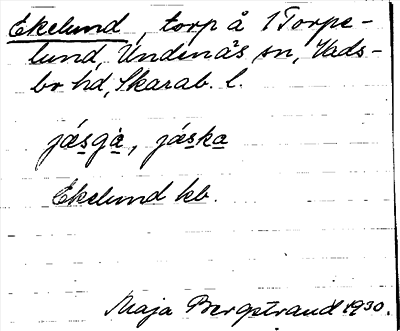 Ekelund, torp å 1 Torpe-
lund, Undenäs sn, Vads-
bo hd, Skarab. l.
jæsgà, jæska
Ekelund kb.
Maja Bergstrand 1930.